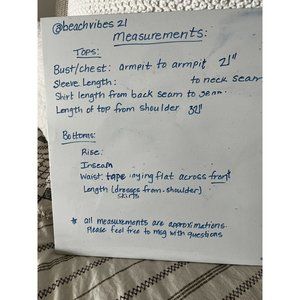 @beachvibes 21
Measurements:
Tops:
Bust/chest: armpit to armpit 21"
Sleeve Length: to neck seam
Shirt length from back seam to seam
Length of top from shoulder
Bottoms:
Rise:
Inseam
Waist: tape laying flat across front
Length (dresses from shoulder)
skirts
* all measurements are approximations.
Please feel free to msg with questions